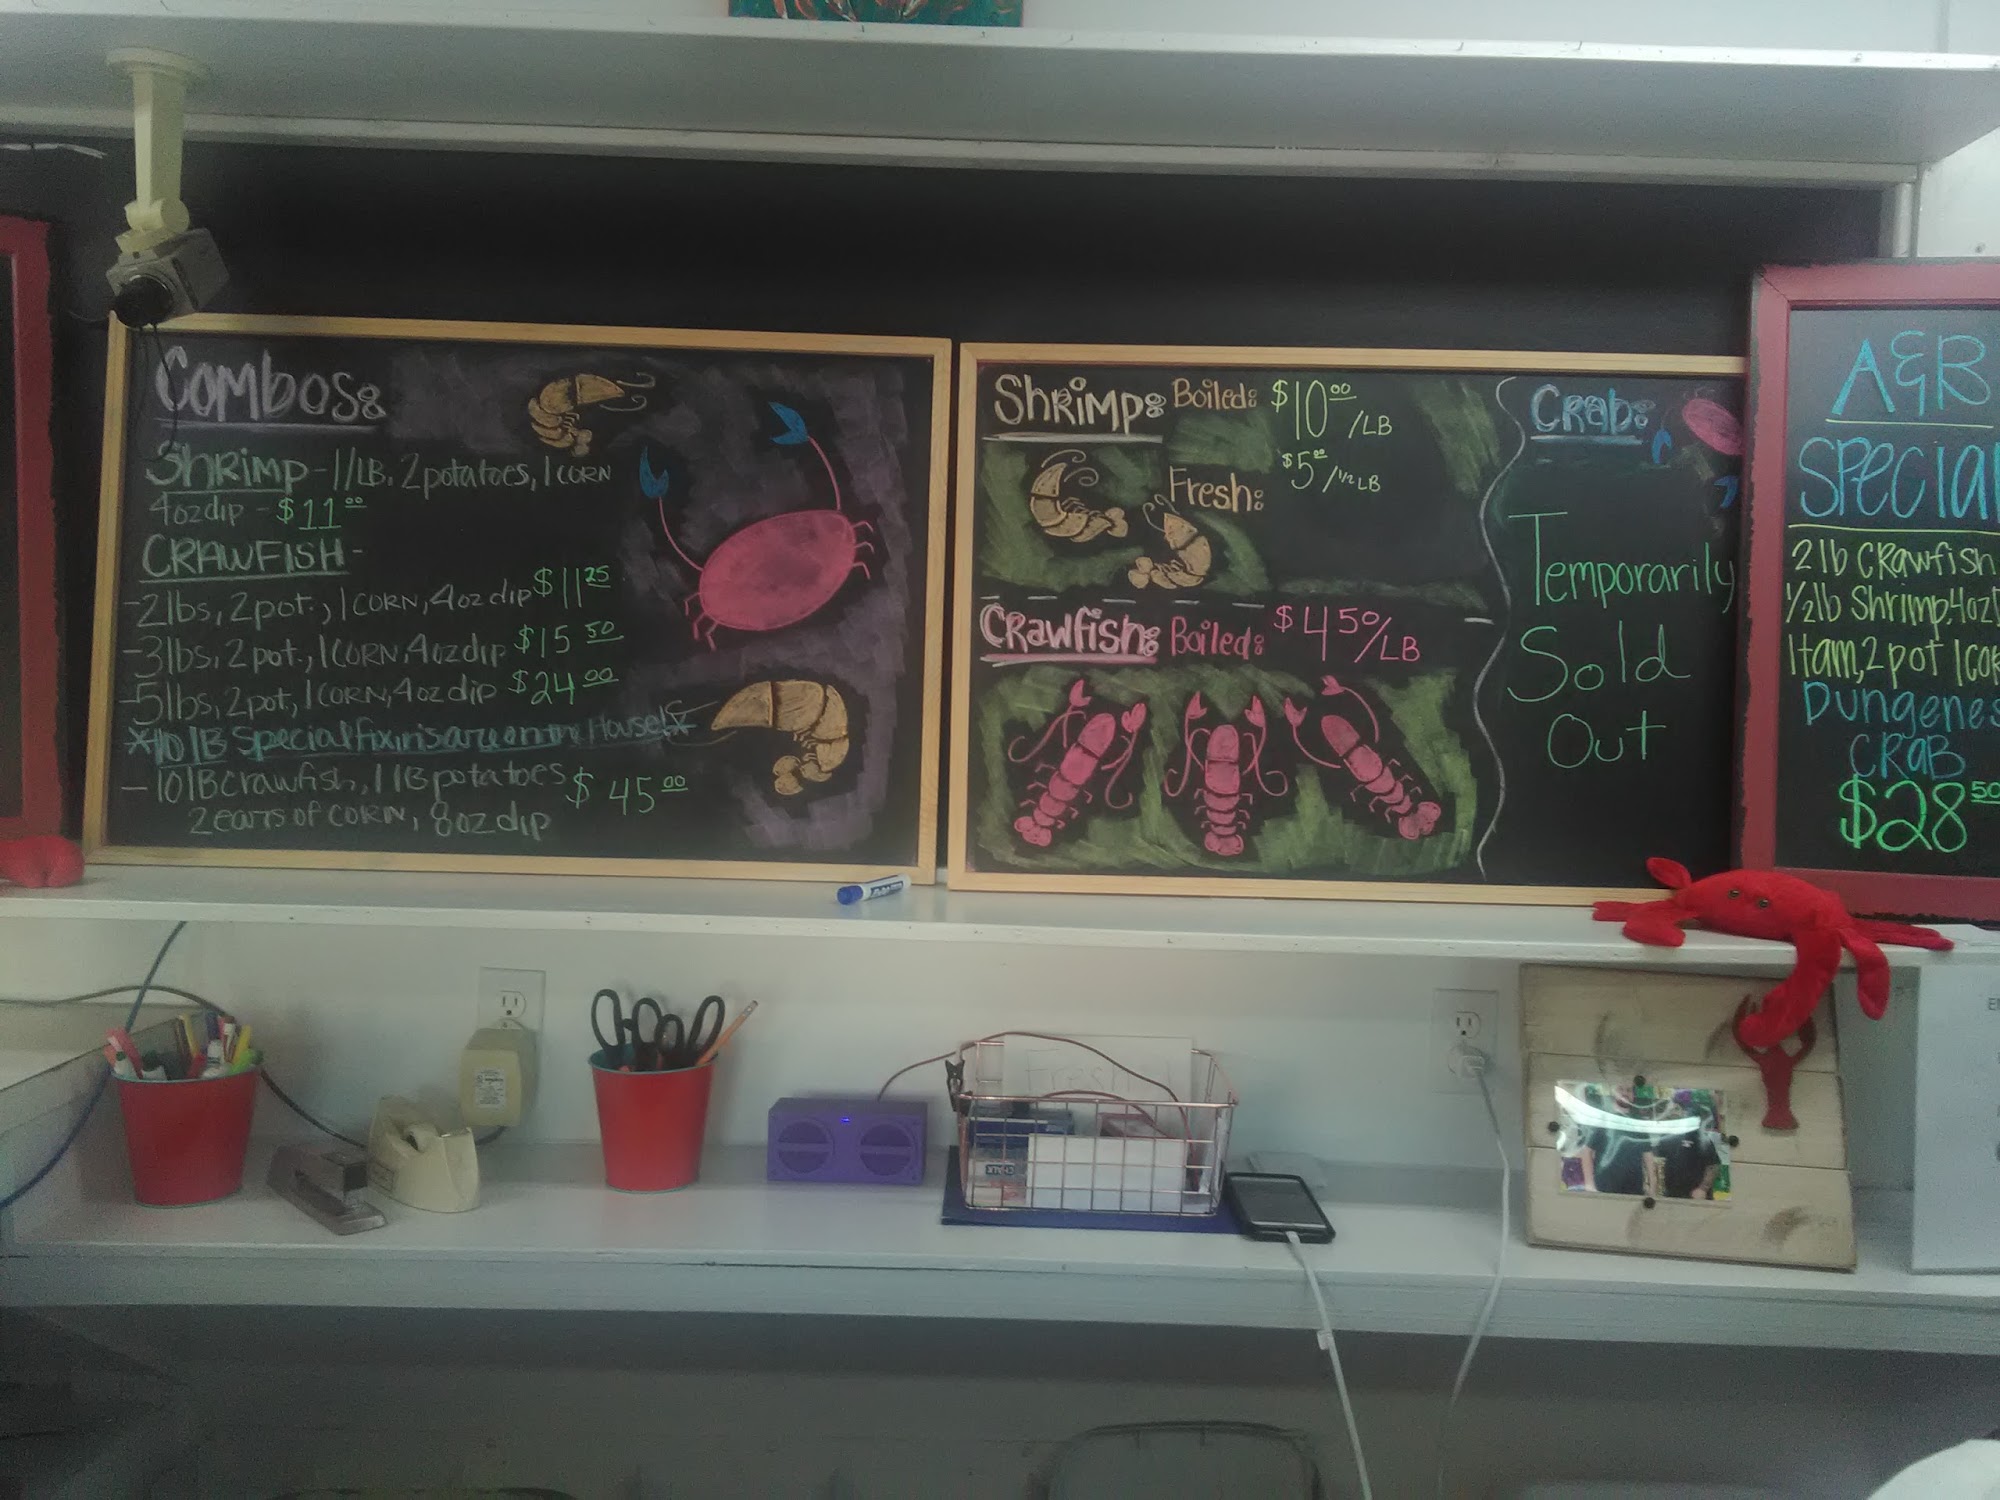 Combos:
Shrimp - 1/LB. 2 potatoes, 1 CORN
4oz dip - $11.00
CRAWFISH -
- 2 lbs, 2 pot., 1 CORN, 4oz dip $11.25
- 3 lbs, 2 pot., 1 CORN, 4oz dip $15.50
- 5 lbs, 2 pot, 1 CORN, 4oz dip $24.00
*10 LB Special fixins are on the House!*
- 10 LB crawfish, 1 LB potatoes $45.00
2 ears of CORN, 8oz dip
Shrimp: Boiled: $10.00/LB
$5.00/ 1/2 LB
Fresh:
Crawfish: Boiled: $4.50/LB
Crab:
Temporarily
Sold
Out
A&B
Special
2 lb Crawfish
1/2 lb Shrimp, 4oz
1 tam, 2 pot 1 cor
Dungenes
CRAB
$28.50
Fresh
CHALK